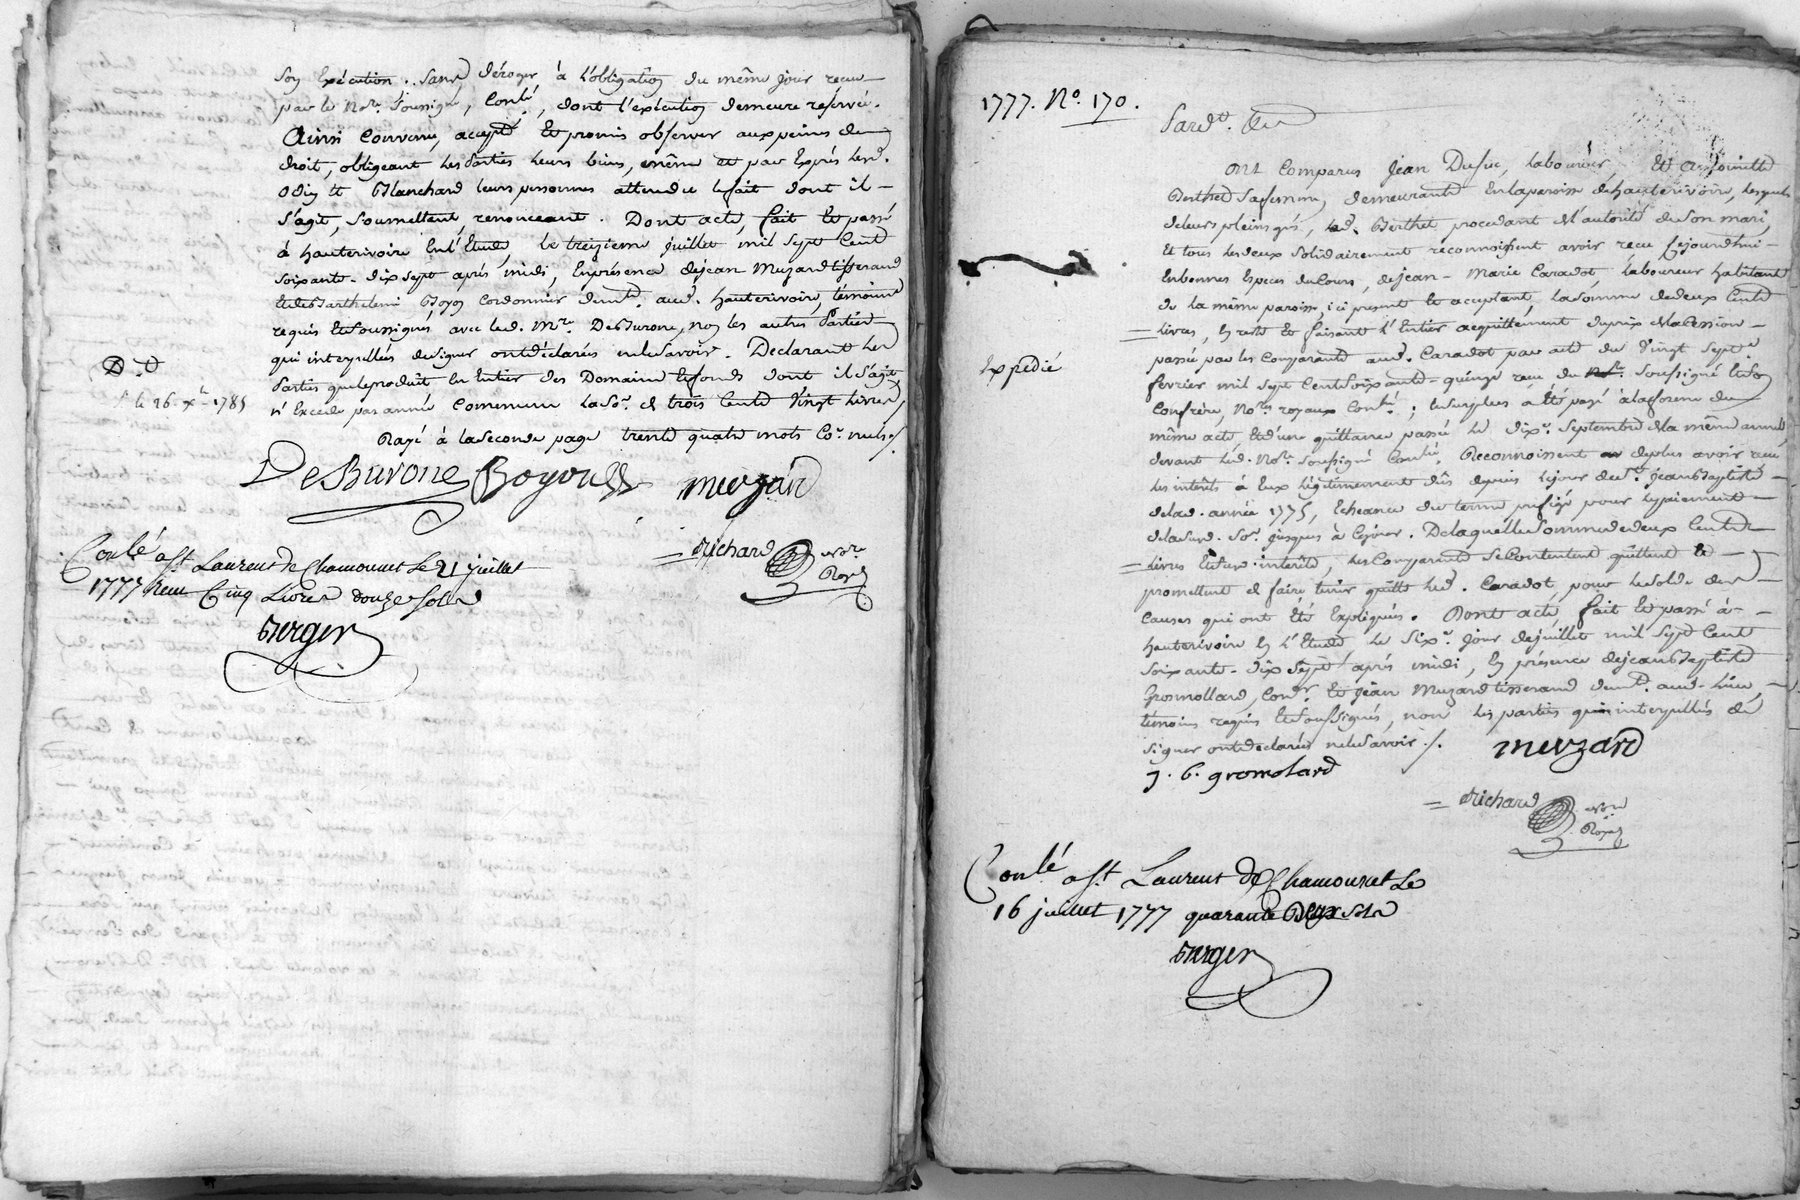 son Exécution. Sans déroger à l'obligation du même jour recue
par le Nore. soussigné, Conlé, dont l'exécution demeure reservée.
Ainsi Convenu, accepté Et promis observer aux peines de
droit, obligeant les parties leurs biens, même et par Exprès lesd.
Odin et Blanchard leurs personnes attendu le fait dont il
s'agit, soumettant, renonceant. Dont acte, fait Et passé
à hauterivoire En l'Etude, le treizieme juillet mil sept Cent
soixante-dix sept après midi, En présence de jean Muzard tisserand
Et de Barthelemi Boyou Cordonnier demts. aud. hauterivoire, témoins
requis Et soussignés, avec led. Mre. DesBurone, non les autres parties
qui interpellées de signer ont déclarés ne le savoir. Declarant les
parties que le produit En Entier des Domaine Et fonds dont il s'agit
n'Excede pas année Commune la So. de trois Cents Vingt livres,
D. d
le 26. Xbre. 1785
Rayé à la seconde page trente quatre mots Co. nuls./
DesBurone Boyou muzard
Richard Nore
Royal
Conlé a St. Laurent de Chamousset Le 21 juillet
1777 Reçu Cinq Livres douze sols
Berger
1777. No. 170.
Pardt. &a
Ont Comparus Jean Dufuc, laboureur, Et Antoinette
Berthet sa femme, demeurants En la paroisse de hauterivoire, lesquels
de leurs pleins grés, lad. Berthet procedant de l'autorité de son mari,
Et tous les deux solidairement réconnoissent avoir recu sejourdhui
En bonnes Especes de Cours, de jean-Marie Caradot, laboureur habitant
de la même paroisse, ici present Et acceptant, la somme de deux Cents
livres, En reste Et faisant l'Entier acquittement du prix de la Cession
passée par les Comparants aud. Caradot par acte du Vingt sept
Expedié
fevrier mil sept Cent soixante-quinze recu du Nore. soussigné Et son
Confrère, Nores. royaux Conlé; le surplus a été payé à la forme du
même acte, Et d'une quittance passée le dixe. septembre de la même année,
devant led. Nore. soussigné Conlé. Reconnoissent de plus avoir recu
les interêts à Eux légitimement dûs depuis le jour de St. jean Baptiste
de lad. année 1775, Echeance du terme prefigé pour le paiement
de la susd. So. jusques à Ce jour. De laquelle somme de deux Cents
livres Et sus. intérêts, les Comparants se Contentent quittent Et
promettent de faire tenir quitte led. Caradot, pour le solde des
Causes qui ont été Expliquées. Dont acte fait Et passé à
hauterivoire En l'Etude le sixe. jour de juillet mil sept Cent
soixante-dix sept après midi, En présence de jean Baptiste
Gromollard, Conr. Et jean Muzard tisserand demts. aud. lieu,
témoins requis Et soussignés, non les parties qui interpellés de
signer ont declarés ne le savoir./.
muzard
j. b. gromolard
Richard Nore
Royal
Conlé a St. Laurent de Chamousset Le
16 juillet 1777 quarante Deux sols
Berger